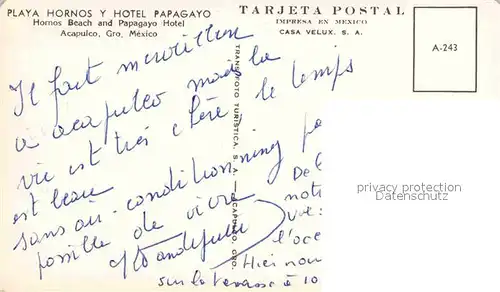 PLAYA HORNOS Y HOTEL PAPAGAYO
Hornos Beach and Papagayo Hotel
Acapulco, Gro, México
TARJETA POSTAL
IMPRESA EN MEXICO
CASA VELUX. S. A.
A-243
TRANSFOTO TURISTICA, S. A. — ACAPULCO, GRO.
Il fait merveilleux
à acapulco mais la
vie est très chère le temps
est beau
sans air-conditionning pa
possible de vivre
De l
notr
vue:
l'océ
Hier nou
sur la terrasse à 10
privacy protection
Datenschutz